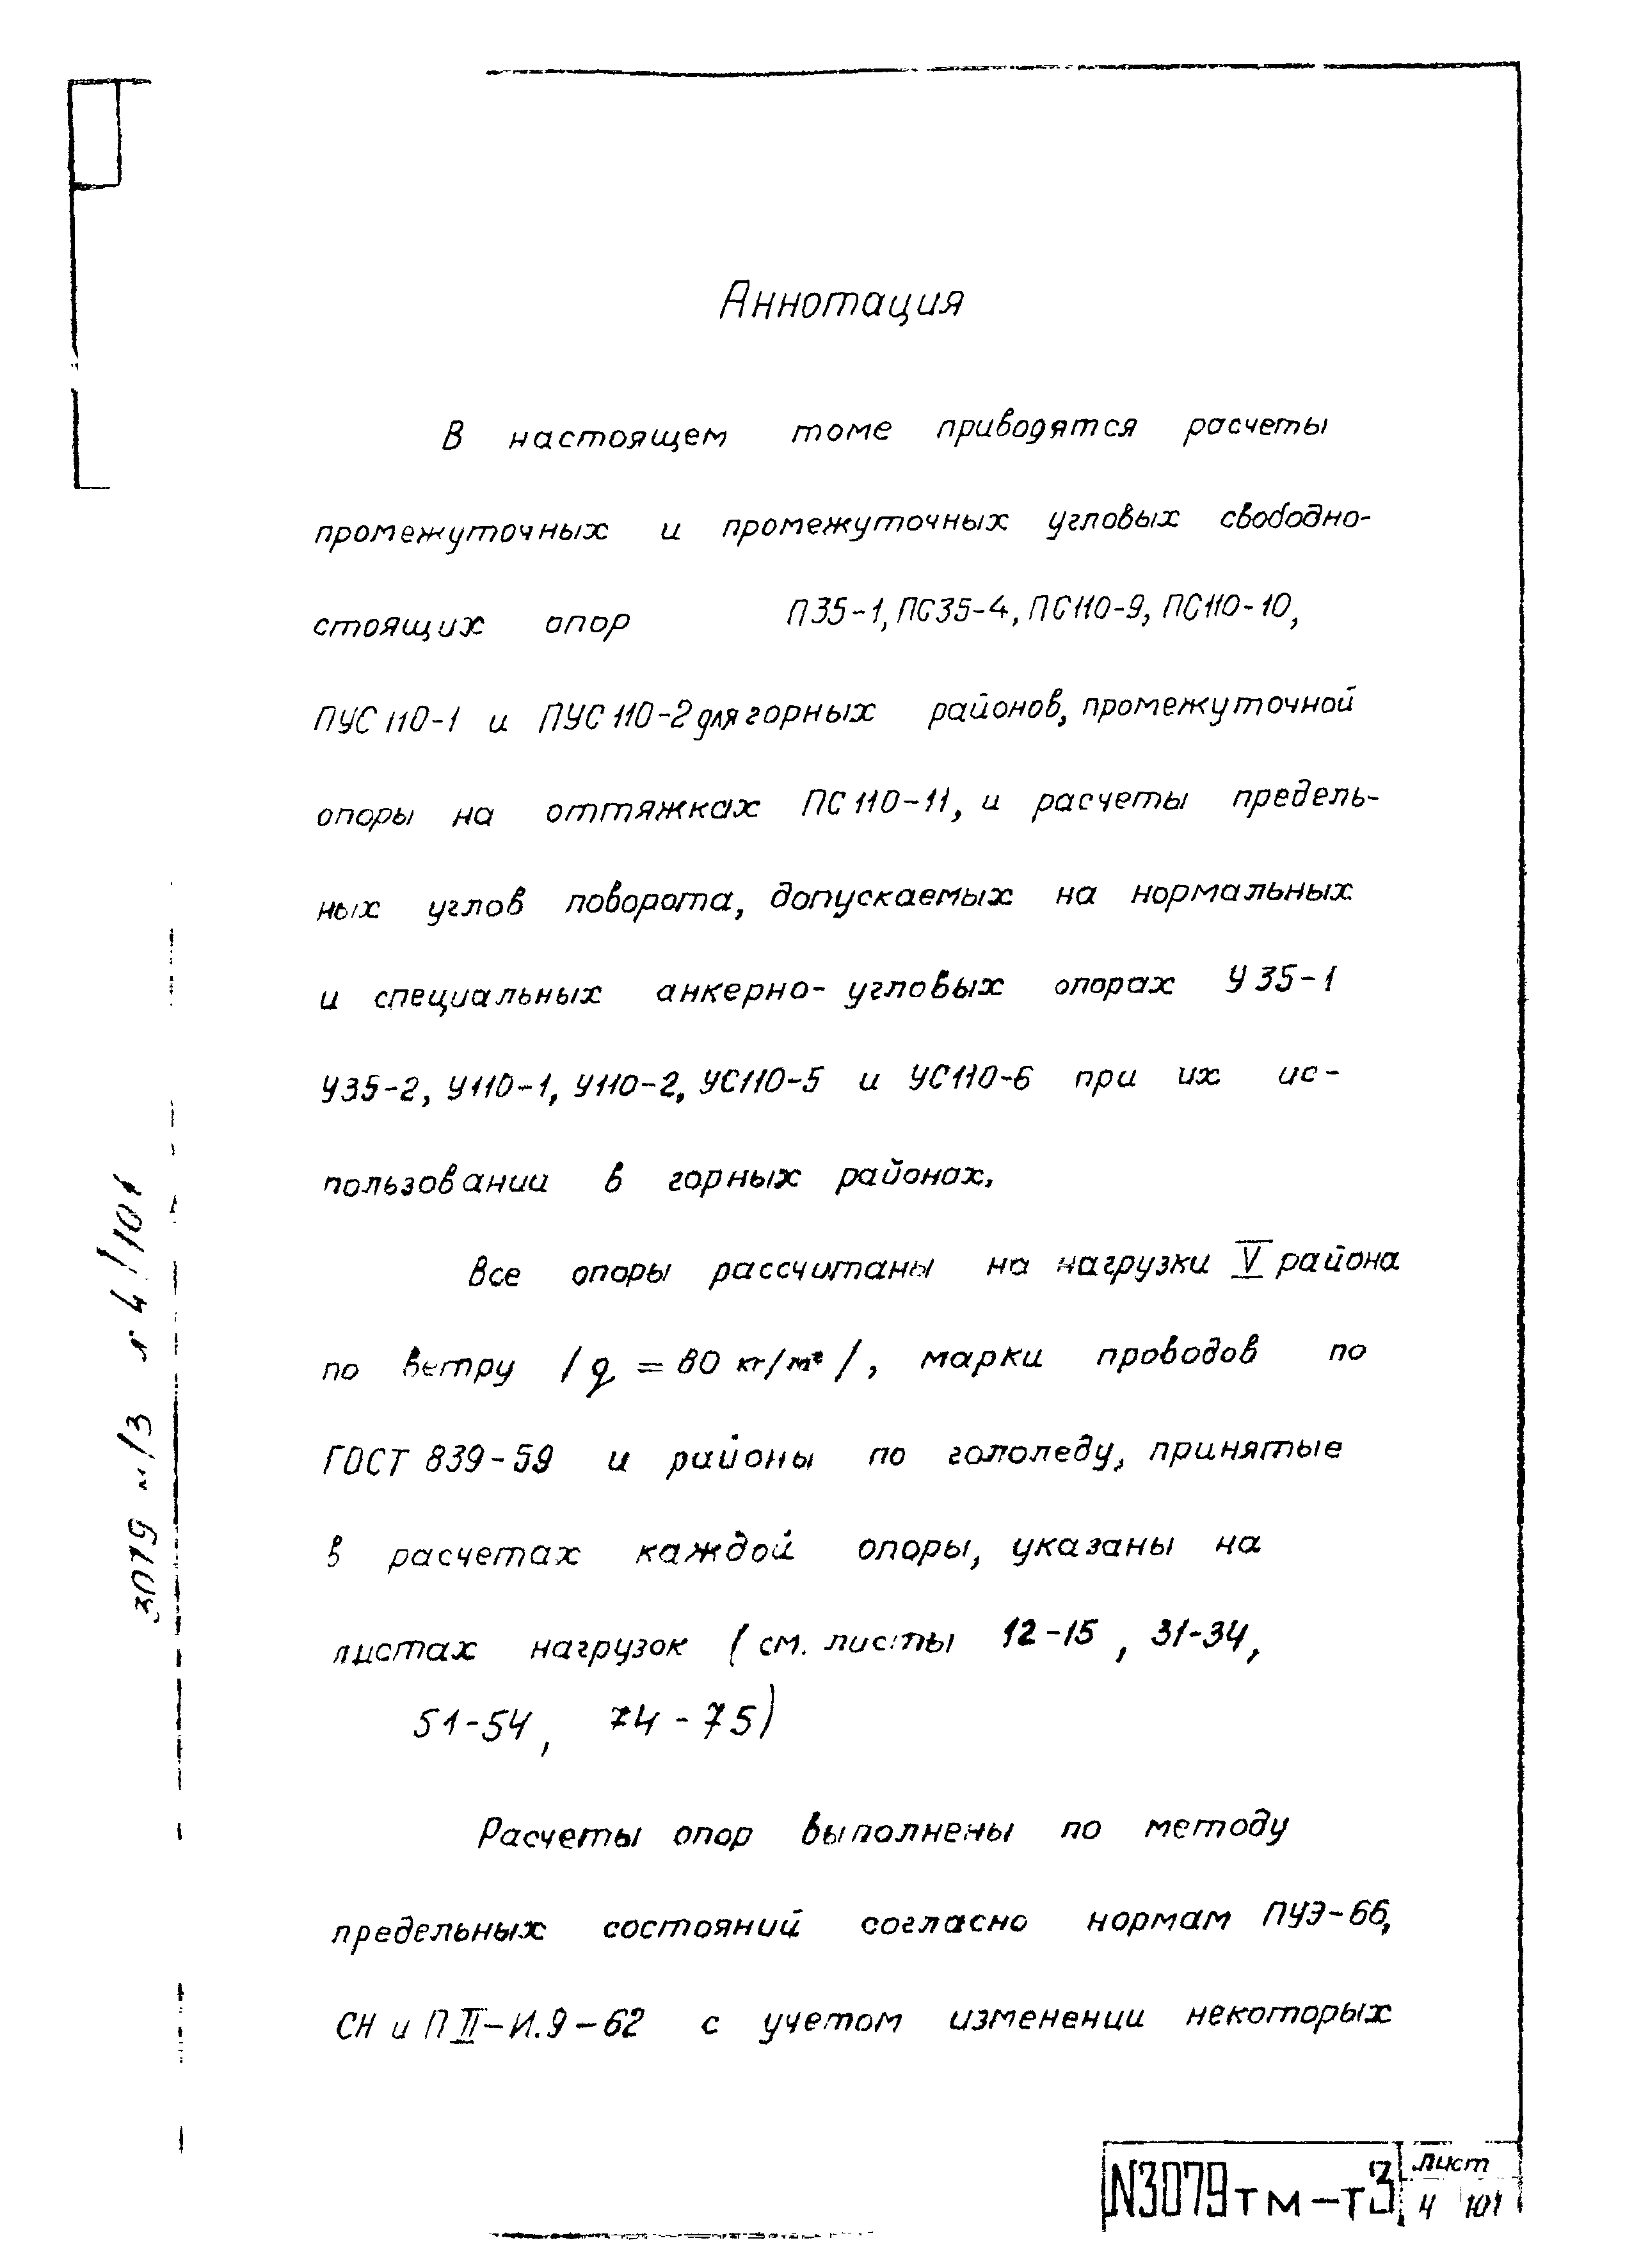 Аннотация
В настоящем томе приводятся расчеты
промежуточных и промежуточных угловых свободно-
стоящих опор П35-1, ПС35-4, ПС110-9, ПС110-10,
ПУС110-1 и ПУС110-2 для горных районов, промежуточной
опоры на оттяжках ПС110-11, и расчеты предель-
ных углов поворота, допускаемых на нормальных
и специальных анкерно-угловых опорах У35-1
У35-2, У110-1, У110-2, УС110-5 и УС110-6 при их ис-
пользовании в горных районах.
Все опоры рассчитаны на нагрузки V района
по ветру /q = 80 кг/м²/, марки проводов по
ГОСТ 839-59 и районы по гололеду, принятые
в расчетах каждой опоры, указаны на
листах нагрузок (см. листы 12-15, 31-34,
51-54, 74-75)
Расчеты опор выполнены по методу
предельных состояний согласно нормам ПУЭ-66,
СН и П II-И.9-62 с учетом изменении некоторых
N3079тм-т3
лист
4 101
3079 м/3 л 4/101